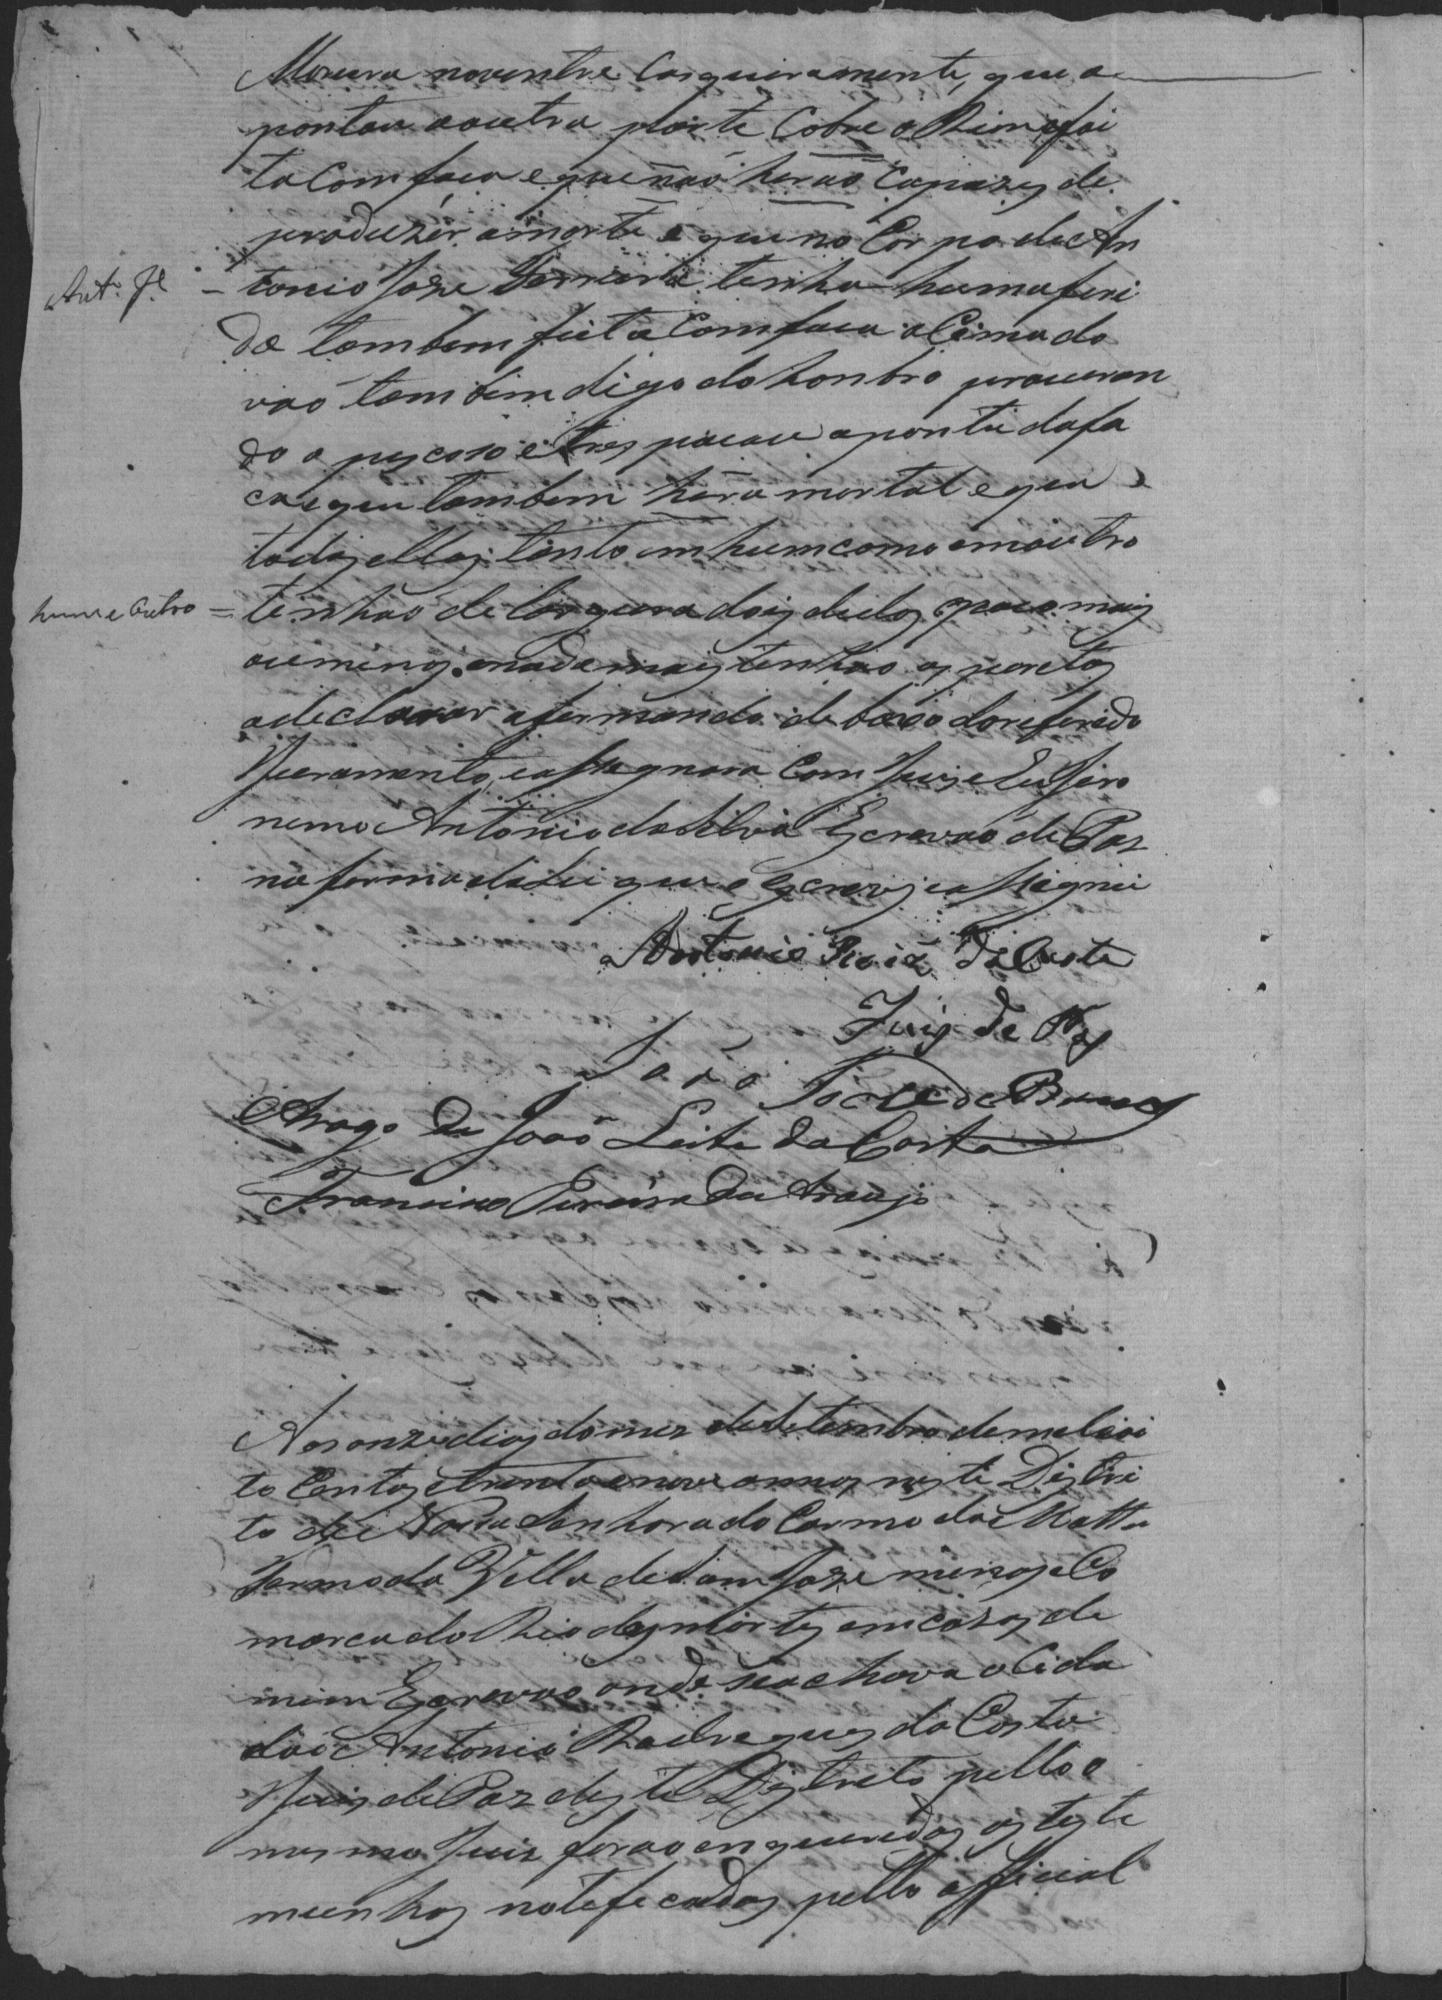 Moreira no ventre Corqueiramente, que a
pontou a outra parte Cobre o Rim e foi
to Com faca e que não herão Capazes de
produzir a morte e que no Corpo de An
Ant.º Je. = tonio Joze Ferreira tenha huma feri
da tambem feita Com faca a Cima do
vão tambem digo do honbro procuran
do o pescoso e tres pacou a ponta da fa
ca e que tambem hera mortal e que
todas ellas tanto em hum como em outro
hum e outro = tenhão de largura dois dedos pouco mais
ou menos, e nada mais tenhão os peretos
a declarar afermando de baxo do referido
Juramento, e assegnara Com Juis e Eu Jero
nemo Antonio da Silva Escrevão de Paz
na forma da Lei que o escrevy e assignei
Antonio da Costa
Juis de Paz
João Joze de
Arogo de João Leite da Costa
Francisco Pereira de Araujo
Aos onze dias do mez de Setembro de mil oi
to Centos e trenta e nove annos neste Destri
to de Nossa Senhora do Carmo da Matta
Termo da Villa de Sam Joze minas e Co
marca do Rio das mortes em cazas de
mim Escrevão onde se achava o Cida
dão Antonio Rodregues da Costa
Juis de Paz deste Destreto pello o
mesmo Juiz forão enqueredas as teste
munhas notefecadas pello official